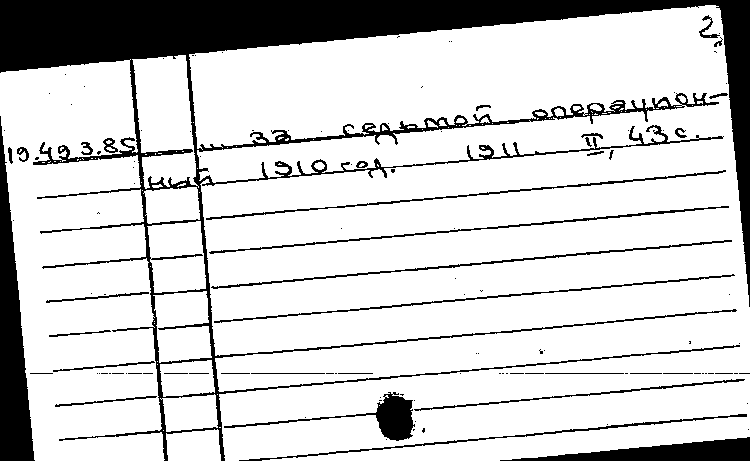 2
19.49 3.85 ... за седьмой операцион-
ный 1910 год. 1911. II, 43 с.